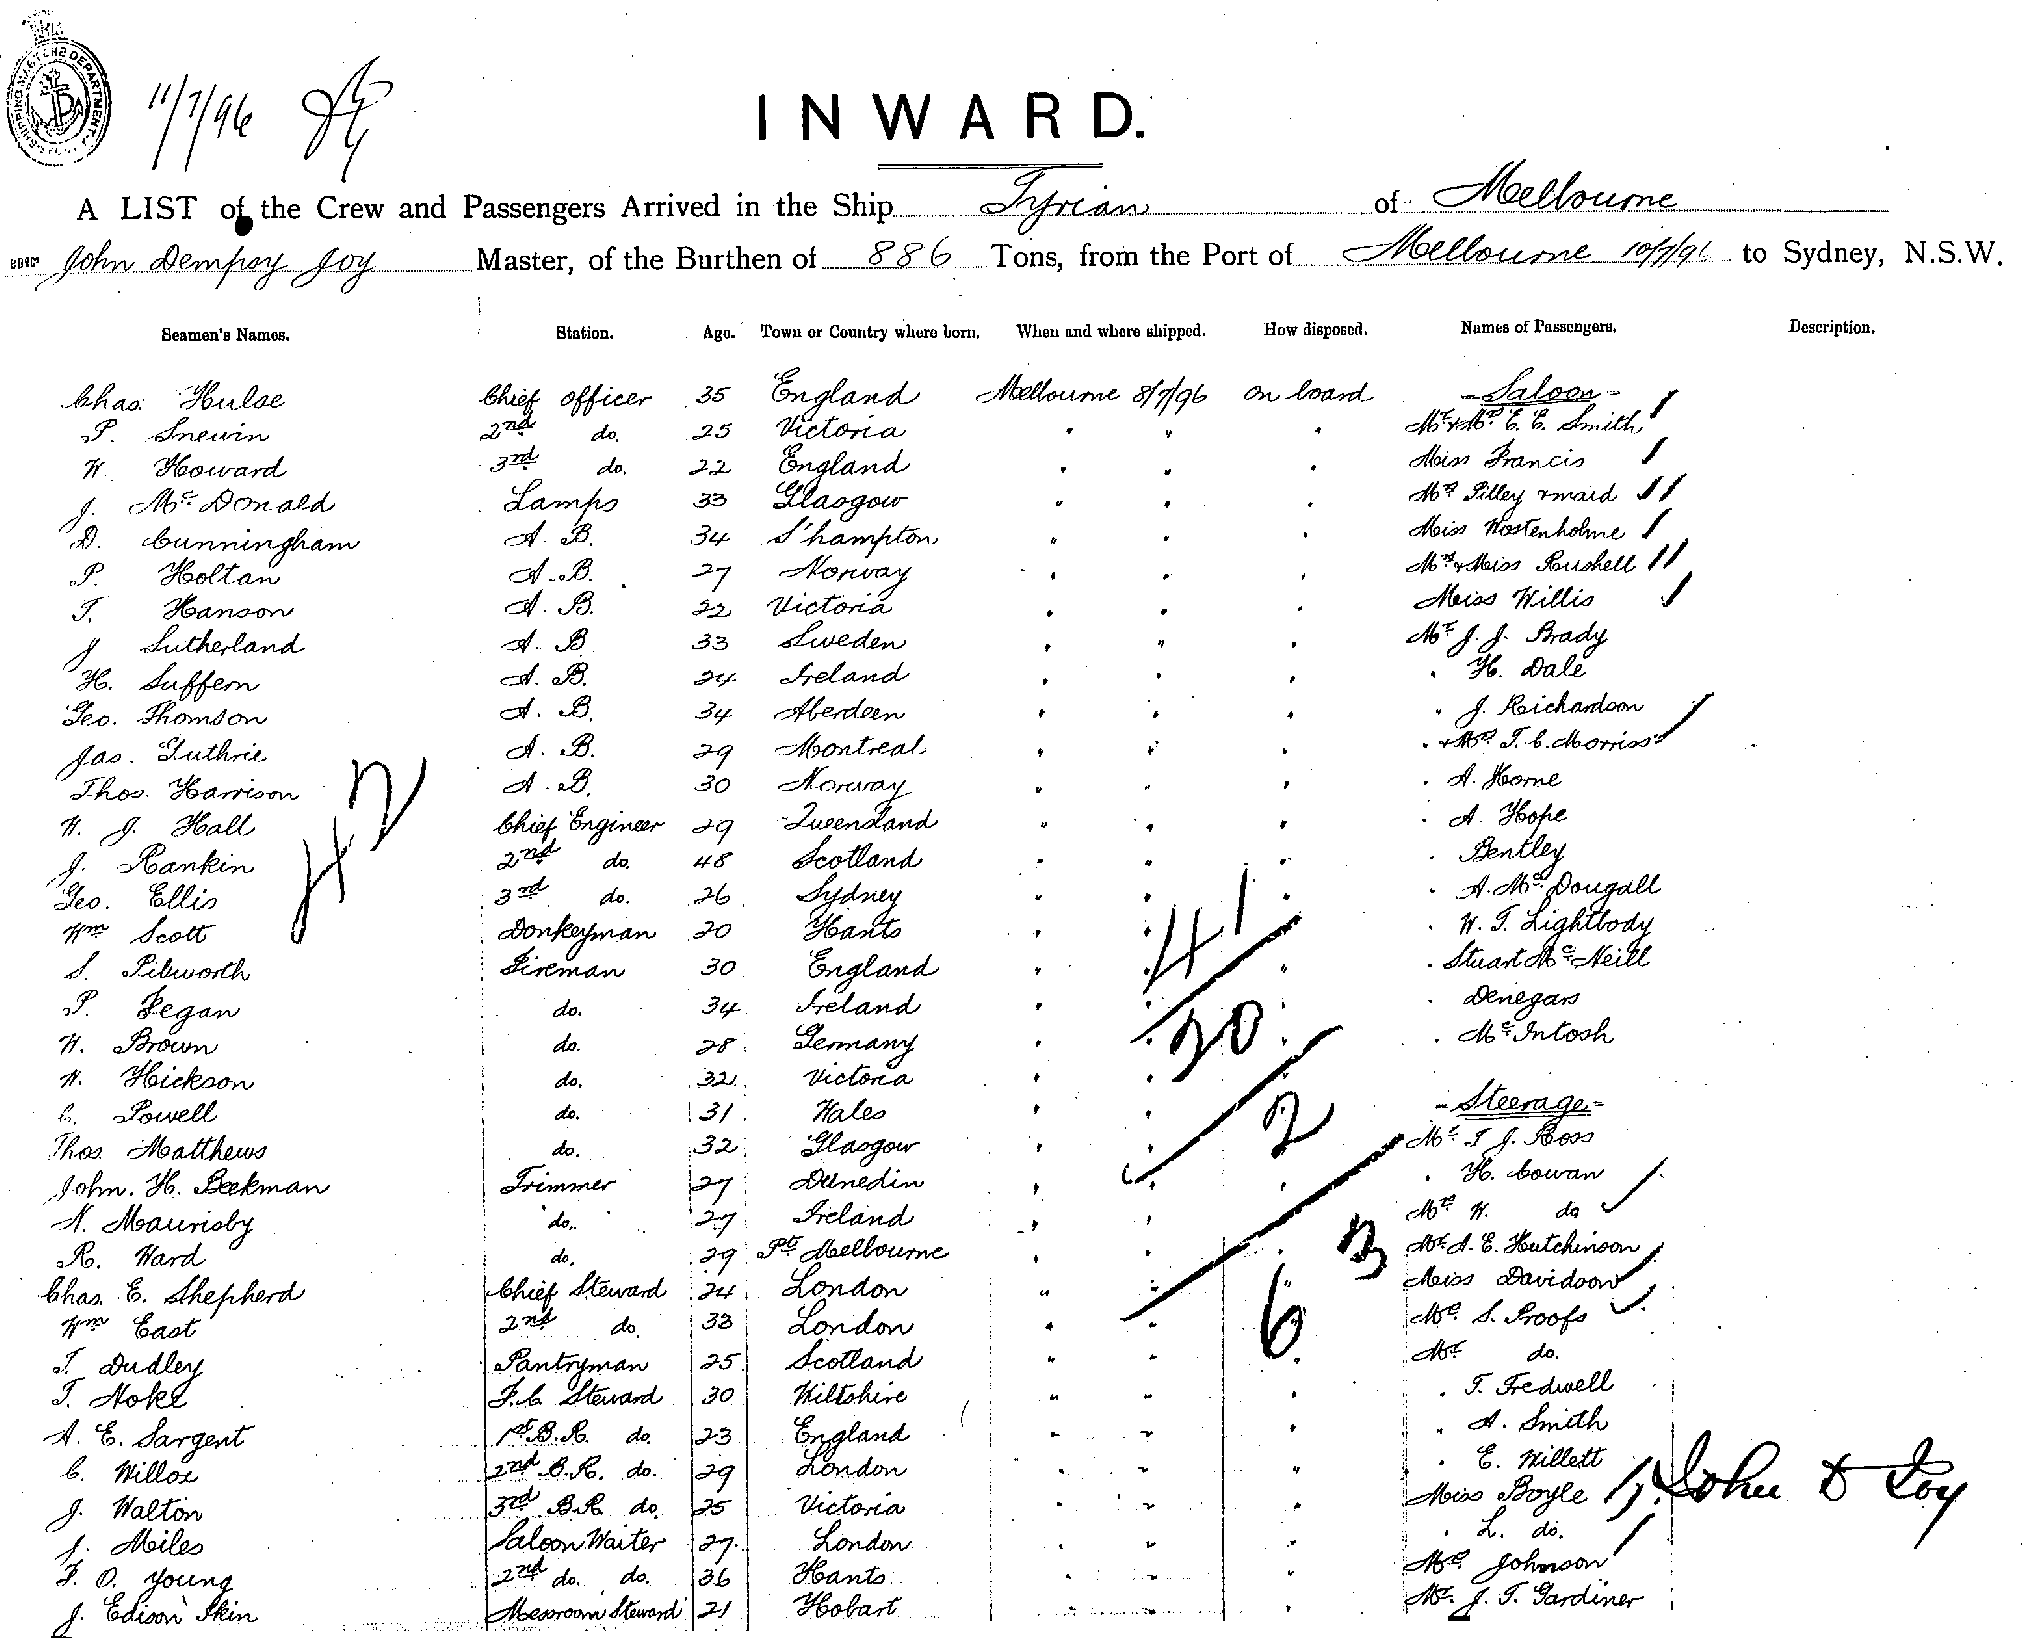 SHIPPING MASTERS DEPARTMENT
11/7/96
INWARD.
A LIST of the Crew and Passengers Arrived in the Ship Tyrian of Melbourne
John Dempsy Joy Master, of the Burthen of 886 Tons, from the Port of Melbourne 10/7/96 to Sydney, N.S.W.
Seamen's Names. Station. Age. Town or Country where born. When and where shipped. How disposed. Names of Passengers. Description.
Chas. Hulse Chief officer 35 England Melbourne 8/7/96 on board - Saloon -
P. Snewin 2nd do. 25 Victoria " " " Mr & Mrs E. E. Smith
W. Howard 3rd do. 22 England " " " Miss Francis
J. McDonald Lamps 33 Glasgow " " " Mrs Pilley & maid
D. Cunningham A. B. 34 S'hampton " " " Miss Wostenholme
P. Holtan A. B. 27 Norway " " " Mrs & Miss Rushell
T. Hanson A. B. 22 Victoria " " " Miss Willis
J Sutherland A. B 33 Sweden " " " Mr J. J. Brady
H. Suffern A. B. 24 Ireland " " " " H. Dale
Geo. Thomson A. B. 34 Aberdeen " " " " J. Richardson
Jas. Guthrie A. B. 29 Montreal " " " " & Mrs T. C. Morriss
Thos. Harrison A. B. 30 Norway " " " " A. Horne
W. J. Hall Chief Engineer 29 Queensland " " " " A. Hope
J. Rankin 2nd do. 48 Scotland " " " " Bentley
Geo. Ellis 3rd do. 26 Sydney " " " " A. McDougall
Wm Scott Donkeyman 20 Hants " " " " W. T. Lightbody
S. Pibworth Fireman 30 England " " " " Stuart McNeill
P. Fegan do. 34 Ireland " " " " Denegars
W. Brown do. 28 Germany " " " " McIntosh
W. Hickson do. 32 Victoria " " "
C. Powell do. 31 Wales " " " - Steerage -
Thos. Matthews do. 32 Glasgow " " " Mr T J. Ross
John. H. Beekman Trimmer 27 Dunedin " " " " H. Cowan
N. Maurisby do. 27 Ireland " " " Mrs W. do
R. Ward do. 29 Pt Melbourne " " " Mr A. E. Hutchinson
Chas. E. Shepherd Chief Steward 24 London " " " Miss Davidson
Wm East 2nd do. 33 London " " " Mrs S. Proofs
T. Dudley Pantryman 25 Scotland " " " Mr do.
T. Noke F.C. Steward 30 Wiltshire " " " " T. Tredwell
A. E. Sargent 1st B.R. do. 23 England " " " " A. Smith
C. Willox 2nd B.R. do. 29 London " " " " E. Willett
J. Walton 3rd B.R. do. 25 Victoria " " " Miss Boyle
J. Miles Saloon Waiter 27. London " " " " L. do.
F. O. Young 2nd do. do. 36 Hants " " " Mrs Johnson
J. Edison Skin Messroom Steward 21 Hobart " " " Mr J. T. Gardiner
42
41
20
2
3
6
17
John D Joy